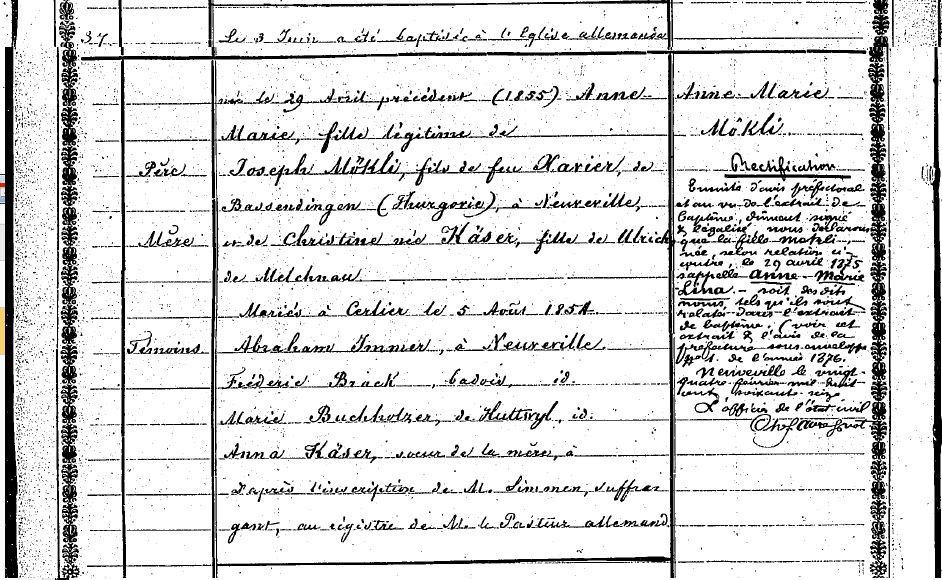 37
Le 3 Juin a été baptisée à l'Eglise allemande
née le 29 Avril précédent (1855) Anne
Marie, fille légitime de
Père
Joseph Mökli, fils de feu Xavier, de
Bassendingen (Thurgovie), à Neuveville,
Mère
et de Christine née Käser, fille de Ulrich
de Melchnau
Mariés à Cerlier le 5 Août 1854
Témoins
Abraham Immer, à Neuveville
Fréderic Brack, badois, id.
Marie Buchholzer, de Huttwyl, id.
Anna Käser, soeur de la mère, à
D'après l'inscription de M. Simmen, suffra-
gant, au régistre de M. le Pasteur allemand
Anne-Marie
Mökli.
Rectification
Ensuite d'avis préfectoral
et au vu de l'extrait de
baptême, dûment signé
& légalisé, nous déclarons
que la fille Mökli,
née, selon relation ci
contre, le 29 avril
s'appelle Anne-Marie
Lina. - soit des dits
noms, tels qu'ils sont
relatés dans l'extrait
de baptême. (voir cet
extrait & l'avis de la
préfecture sous enveloppe
No 1. de l'année 1876.
Neuveville le vingt-
quatre février mil-huit
cent soixante-seize
L'officier de l'état civil